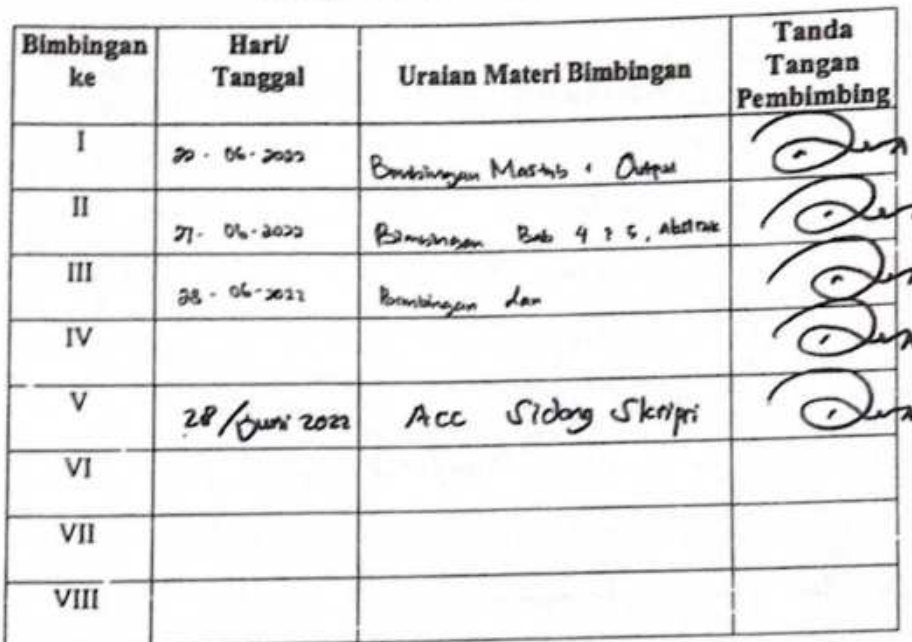 Bimbingan ke
Hari/ Tanggal
Uraian Materi Bimbingan
Tanda Tangan Pembimbing
I
06-2022 Bimbingan Output
II
27- 06-2022 Bimbingan Bab 4 & 5, Abstrak
III
28 - 06-2022 Bimbingan dan
IV
V 28/Juni 2022 Acc Sidang Skripsi
VI
VII
VIII